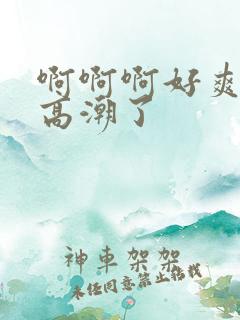 啊啊啊好爽
高潮了
神車架架
未经同意禁止搭载